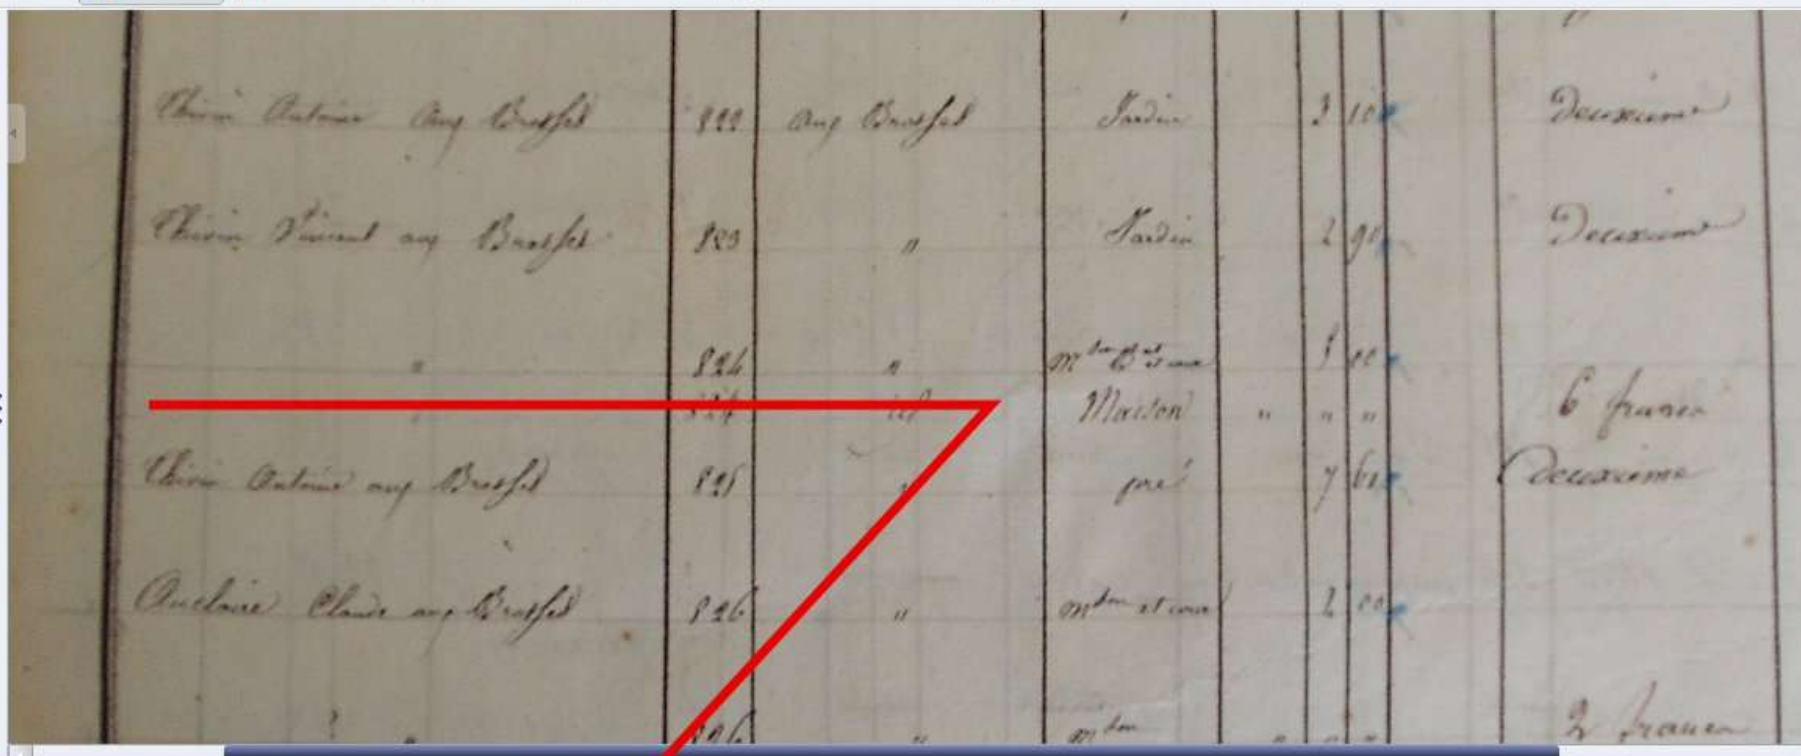 Antoine aux Brosses 822 aux Brosses Jardin 3 10 Deuxieme
Vincent aux Brosses 823 " Jardin 2 90 Deuxieme
" 824 " et cour
" Maison " " " 6 francs
Antoine aux Brosses 825 " pré 7 60 Deuxieme
Auclaire Claude aux Brosses 826 " mson et cour 2
" 826 " mson " " " 2 francs